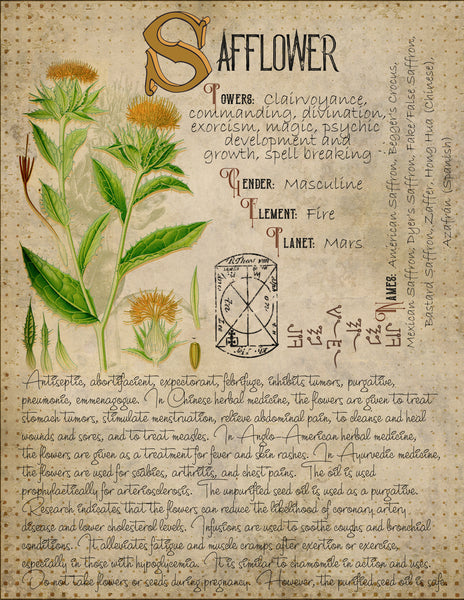 SAFFLOWER
Powers: Clairvoyance,
commanding, divination,
exorcism, magic, psychic
development and
growth, spell breaking
Gender: Masculine
Element: Fire
Planet: Mars
Names: American Saffron, Begger's Crocus,
Mexican Saffron, Dyer's Saffron, Fake/False Saffron,
Bastard Saffron, Zaffer, Hong Hua (Chinese),
Azafran (Spanish)
Antiseptic, abortifacient, expectorant, febrifuge, inhibits tumors, purgative,
pneumonic, emmenagogue. In Chinese herbal medicine, the flowers are given to treat
stomach tumors, stimulate menstruation, relieve abdominal pain, to cleanse and heal
wounds and sores, and to treat measles. In Anglo-American herbal medicine,
the flowers are given as a treatment for fever and skin rashes. In Ayurvedic medicine,
the flowers are used for scabies, arthritis, and chest pains. The oil is used
prophylactically for arteriosclerosis. The unpurified seed oil is used as a purgative.
Research indicates that the flowers can reduce the likelihood of coronary artery
disease and lower cholesterol levels. Infusions are used to soothe coughs and bronchial
conditions. It alleviates fatigue and muscle cramps after exertion or exercise,
especially in those with hypoglycemia. It is similar to chamomile in action and uses.
Do not take flowers or seeds during pregnancy. However, the purified seed oil is safe.